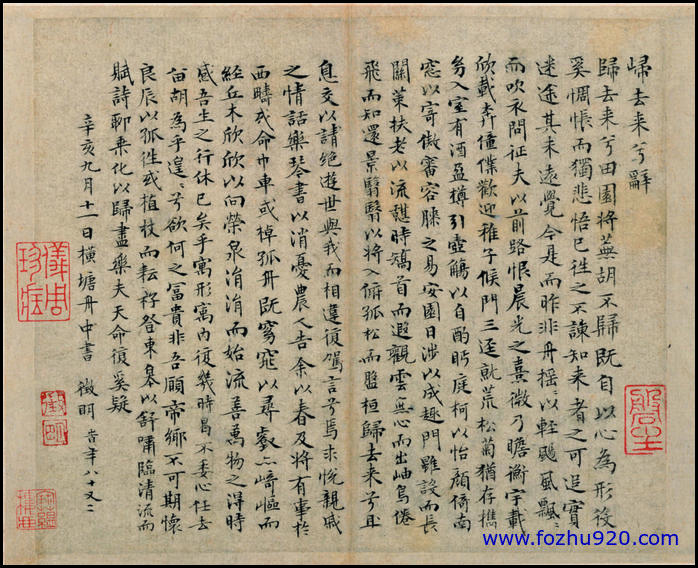 歸去来兮辭
歸去来兮田園将蕪胡不歸既自以心為形役
奚惆悵而獨悲悟已往之不諫知来者之可追實
迷途其未遠覺今是而昨非舟摇〻以輕颺風飄〻
而吹衣問征夫以前路恨晨光之熹微乃瞻衡宇載
欣載奔僮僕歡迎稚子候門三逕就荒松菊猶存攜
幼入室有酒盈樽引壺觴以自酌眄庭柯以怡顔倚南
窓以寄傲審容膝之易安園日涉以成趣門雖設而長
關策扶老以流憩時矯首而遐觀雲無心而出岫鳥倦
飛而知還景翳翳以将入俯孤松而盤桓歸去来兮且
息交以請絶遊世與我而相違復駕言兮焉求悦親戚
之情話樂琴書以消憂農人告余以春及将有事於
西疇或命巾車或棹孤舟既窈窕以尋壑亦崎嶇而
經丘木欣欣以向榮泉涓涓而始流善萬物之得時
感吾生之行休已矣乎寓形寓内復幾時曷不委心任去
留胡為乎遑〻兮欲何之富貴非吾願帝鄉不可期懷
良辰以孤往或植杖而耘耔登東皋以舒嘯臨清流而
賦詩聊乗化以歸盡樂夫天命復奚疑
辛亥九月十一日横塘舟中書 徵明 時年八十又二
儀周珍藏
徵明
www.fozhu920.com